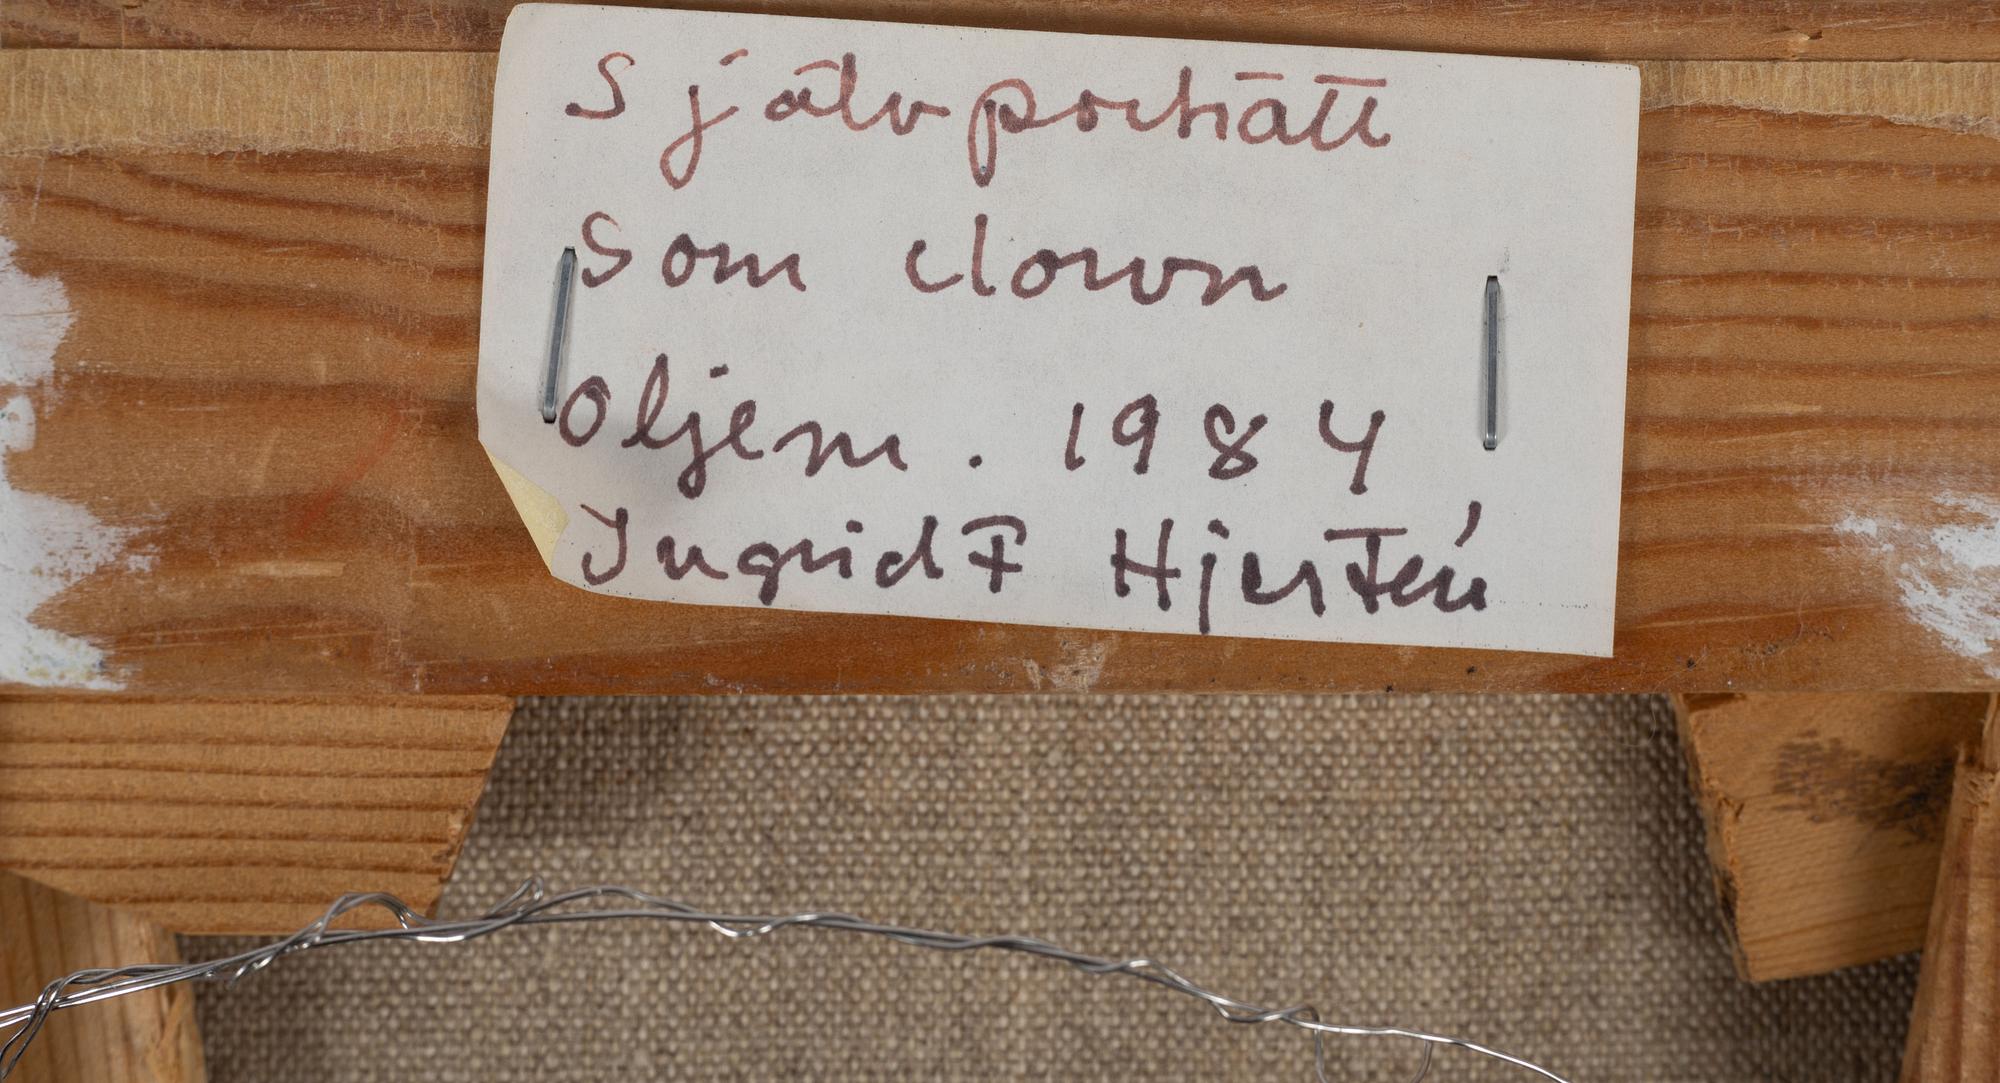 Självporträtt
Som clown
Oljem. 1984
Ingrid F Hjertén